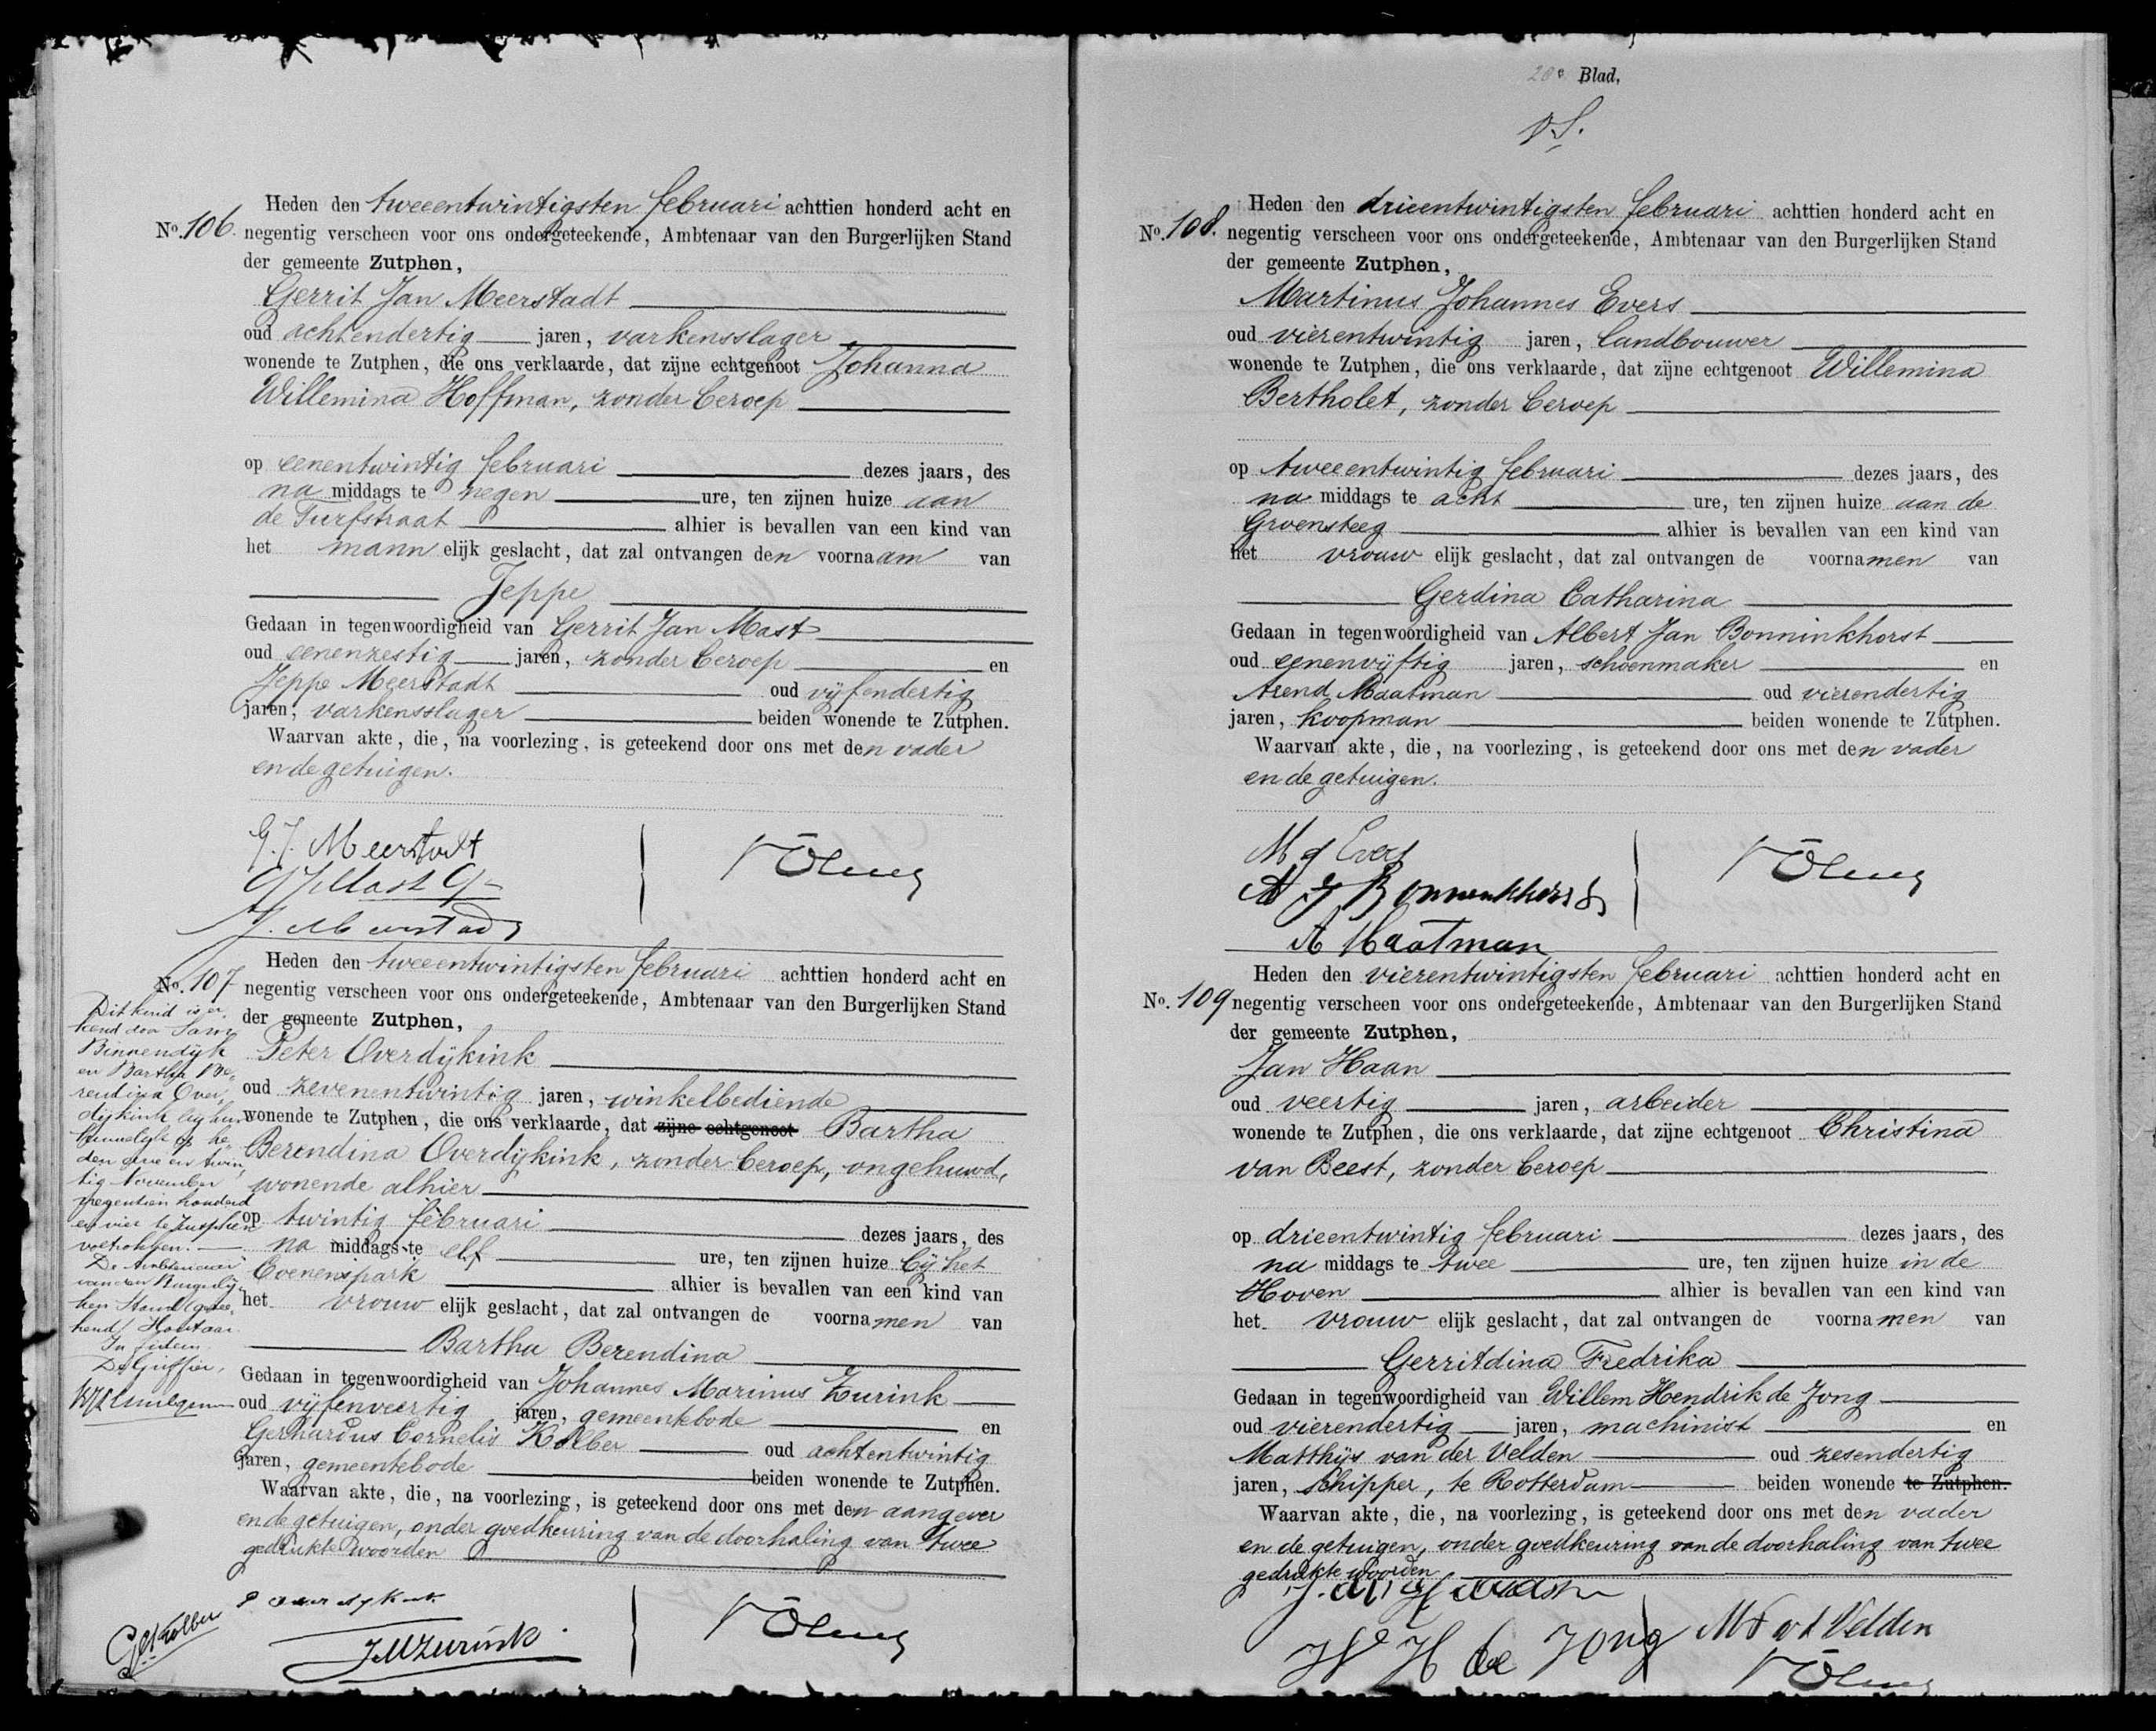 Heden den tweeentwintigsten februari achttien honderd acht en
No. 106. negentig verscheen voor ons ondergeteekende, Ambtenaar van den Burgerlijken Stand
der gemeente Zutphen,
Gerrit Jan Meerstadt
oud achtendertig jaren, varkensslager
wonende te Zutphen, die ons verklaarde, dat zijne echtgenoot Johanna
Willemina Hoffman, zonder beroep
op eenentwintig februari dezes jaars, des
na middags te negen ure, ten zijnen huize aan
de Turfstraat alhier is bevallen van een kind van
het mannelijk geslacht, dat zal ontvangen den voornaam van
Jeppe
Gedaan in tegenwoordigheid van Gerrit Jan Mast
oud eenenzestig jaren, zonder beroep en
Jeppe Meerstadt oud vijfendertig
jaren, varkensslager beiden wonende te Zutphen.
Waarvan akte, die, na voorlezing, is geteekend door ons met den vader
en de getuigen.
G. J. Meerstadt
GJ Mast Gz
J. Meerstadt
Heden den tweeentwintigsten februari achttien honderd acht en
No. 107 negentig verscheen voor ons ondergeteekende, Ambtenaar van den Burgerlijken Stand
der gemeente Zutphen,
Peter Overdijkink
oud zevenentwintig jaren, winkelbediende
wonende te Zutphen, die ons verklaarde, dat zijne echtgenoot Bartha
Berendina Overdijkink, zonder beroep, ongehuwd,
wonende alhier
op twintig februari dezes jaars, des
na middags te elf ure, ten zijnen huize bij het
Coenenspark alhier is bevallen van een kind van
het vrouwelijk geslacht, dat zal ontvangen de voornamen van
Bartha Berendina
Gedaan in tegenwoordigheid van Johannes Marinus Zurink
oud vijfenveertig jaren, gemeentebode en
Gerhardus Cornelis Kolber oud achtentwintig
jaren, gemeentebode beiden wonende te Zutphen.
Waarvan akte, die, na voorlezing, is geteekend door ons met den aangever
en de getuigen, onder goedkeuring van de doorhaling van twee
gedrukte woorden
Dit kind is er-
kend door
Binnendijk
en Bartha Be-
rendina Over-
dijkink bij hun
huwelijk op he-
den een en twin-
tig November
negentien honderd
en vier te Zutphen
voltrokken.
De Ambtenaar
van den Burgerlij-
ken Stand (getee-
kend)
In fidem
De Griffier,
P Overdijkink
GC Kolber
JMZurink
20e Blad.
Heden den drieentwintigsten februari achttien honderd acht en
No. 108. negentig verscheen voor ons ondergeteekende, Ambtenaar van den Burgerlijken Stand
der gemeente Zutphen,
Martinus Johannes Evers
oud vierentwintig jaren, landbouwer
wonende te Zutphen, die ons verklaarde, dat zijne echtgenoot Willemina
Bertholet, zonder beroep
op tweeentwintig februari dezes jaars, des
na middags te acht ure, ten zijnen huize aan de
Groensteeg alhier is bevallen van een kind van
het vrouwelijk geslacht, dat zal ontvangen de voornamen van
Gerdina Catharina
Gedaan in tegenwoordigheid van Albert Jan Bonninkhorst
oud eenenvijftig jaren, schoenmaker en
Arend Maatman oud vierendertig
jaren, koopman beiden wonende te Zutphen.
Waarvan akte, die, na voorlezing, is geteekend door ons met den vader
en de getuigen.
M J Evers
A J Bonnenkhorst
A Maatman
Heden den vierentwintigsten februari achttien honderd acht en
No. 109 negentig verscheen voor ons ondergeteekende, Ambtenaar van den Burgerlijken Stand
der gemeente Zutphen,
Jan Haan
oud veertig jaren, arbeider
wonende te Zutphen, die ons verklaarde, dat zijne echtgenoot Christina
van Beest, zonder beroep
op drieentwintig februari dezes jaars, des
na middags te twee ure, ten zijnen huize in de
Hoven alhier is bevallen van een kind van
het vrouwelijk geslacht, dat zal ontvangen de voornamen van
Gerritdina Fredrika
Gedaan in tegenwoordigheid van Willem Hendrik de Jong
oud vierendertig jaren, machinist en
Matthijs van der Velden oud zesendertig
jaren, schipper, te Rotterdam beiden wonende te Zutphen.
Waarvan akte, die, na voorlezing, is geteekend door ons met den vader
en de getuigen, onder goedkeuring van de doorhaling van twee
gedrukte woorden
W H de Jong
M v d Velden